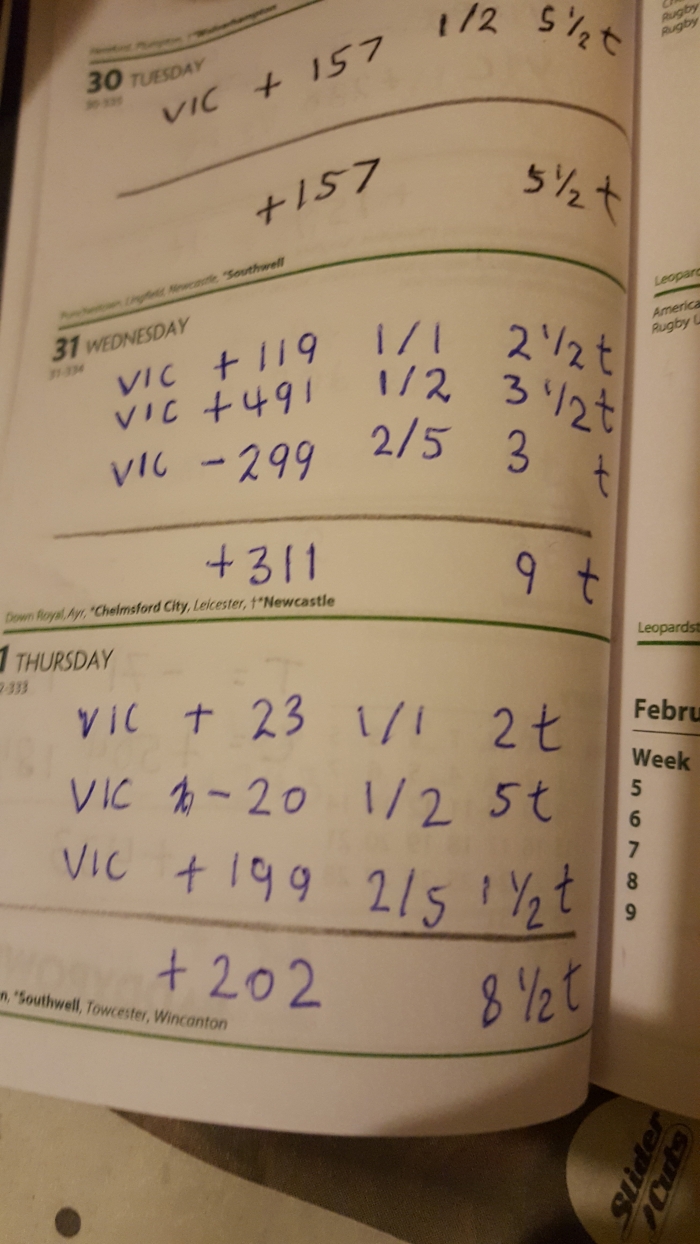 Plumpton, *Wolverhampton
30 TUESDAY
30-335
VIC + 157 1/2 5½t
+157 5½ t
Punchestown, Lingfield, Newcastle, *Southwell
31 WEDNESDAY
31-334
VIC + 119 1/1 2½t
VIC +491 1/2 3½t
VIC - 299 2/5 3 t
+311 9 t
Down Royal, Ayr, *Chelmsford City, Leicester, †*Newcastle
1 THURSDAY
2-333
VIC + 23 1/1 2t
VIC - 20 1/2 5t
VIC + 199 2/5 1½t
+202 8½t
n, *Southwell, Towcester, Wincanton
Rugby
Rugby
Leopard
America
Rugby U
Leopardst
Febru
Week
5
6
7
8
9
Slider
Cuts